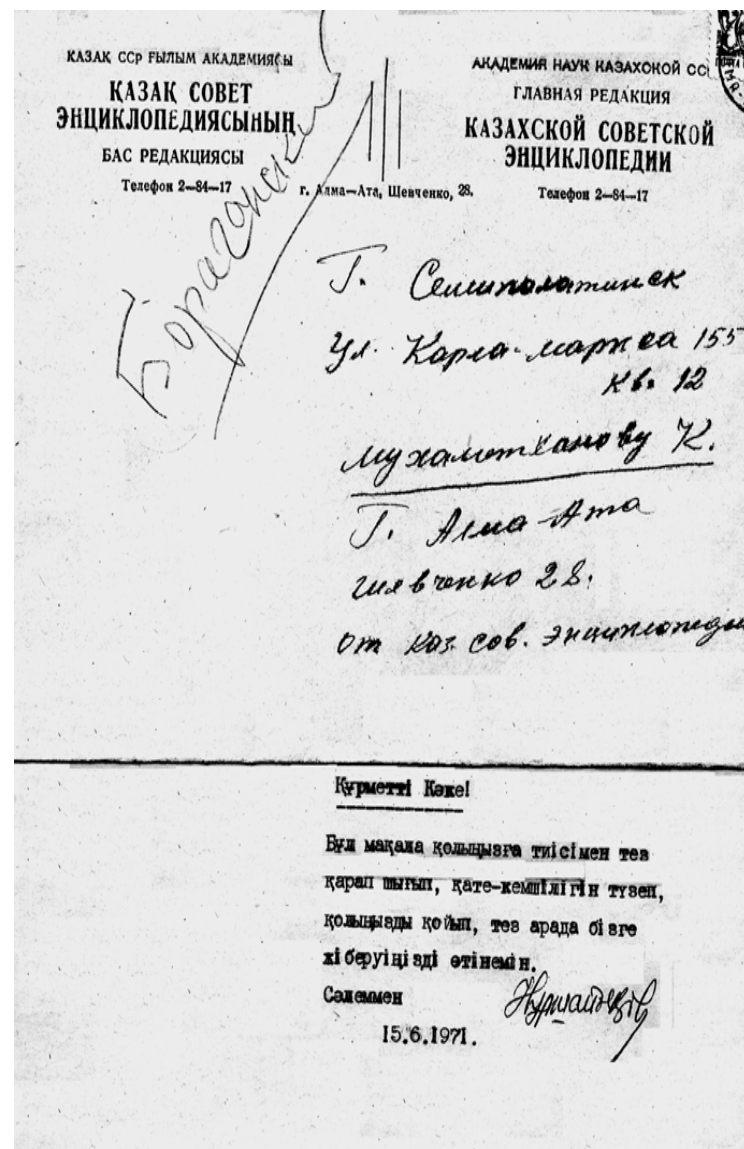 КАЗАК ССР ҒЫЛЫМ АКАДЕМИЯСЫ
ҚАЗАҚ СОВЕТ
ЭНЦИКЛОПЕДИЯСЫНЫҢ
БАС РЕДАКЦИЯСЫ
Телефон 2—84—17
АКАДЕМИЯ НАУК КАЗАХСКОЙ ССР
ГЛАВНАЯ РЕДАКЦИЯ
КАЗАХСКОЙ СОВЕТСКОЙ
ЭНЦИКЛОПЕДИИ
г. Алма—Ата, Шевченко, 28.
Телефон 2—84—17
Г. Семипалатинск
Ул. Карла-маркса 155
кв. 12
Мухаметханову К.
Г. Алма-Ата
Шевченко 28.
От Каз. сов. энциклопеди
Құрметті Кәке!
Бұл мақала қолыңызға тиісімен тез
қарап шығып, қате-кемшілігін түзеп,
қолыңызды қойып, тез арада бізге
жіберуіңізді өтінемін.
Сәлеммен
15.6.1971.